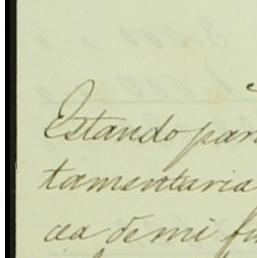 Estando par
tamentaria
cea de mi fu